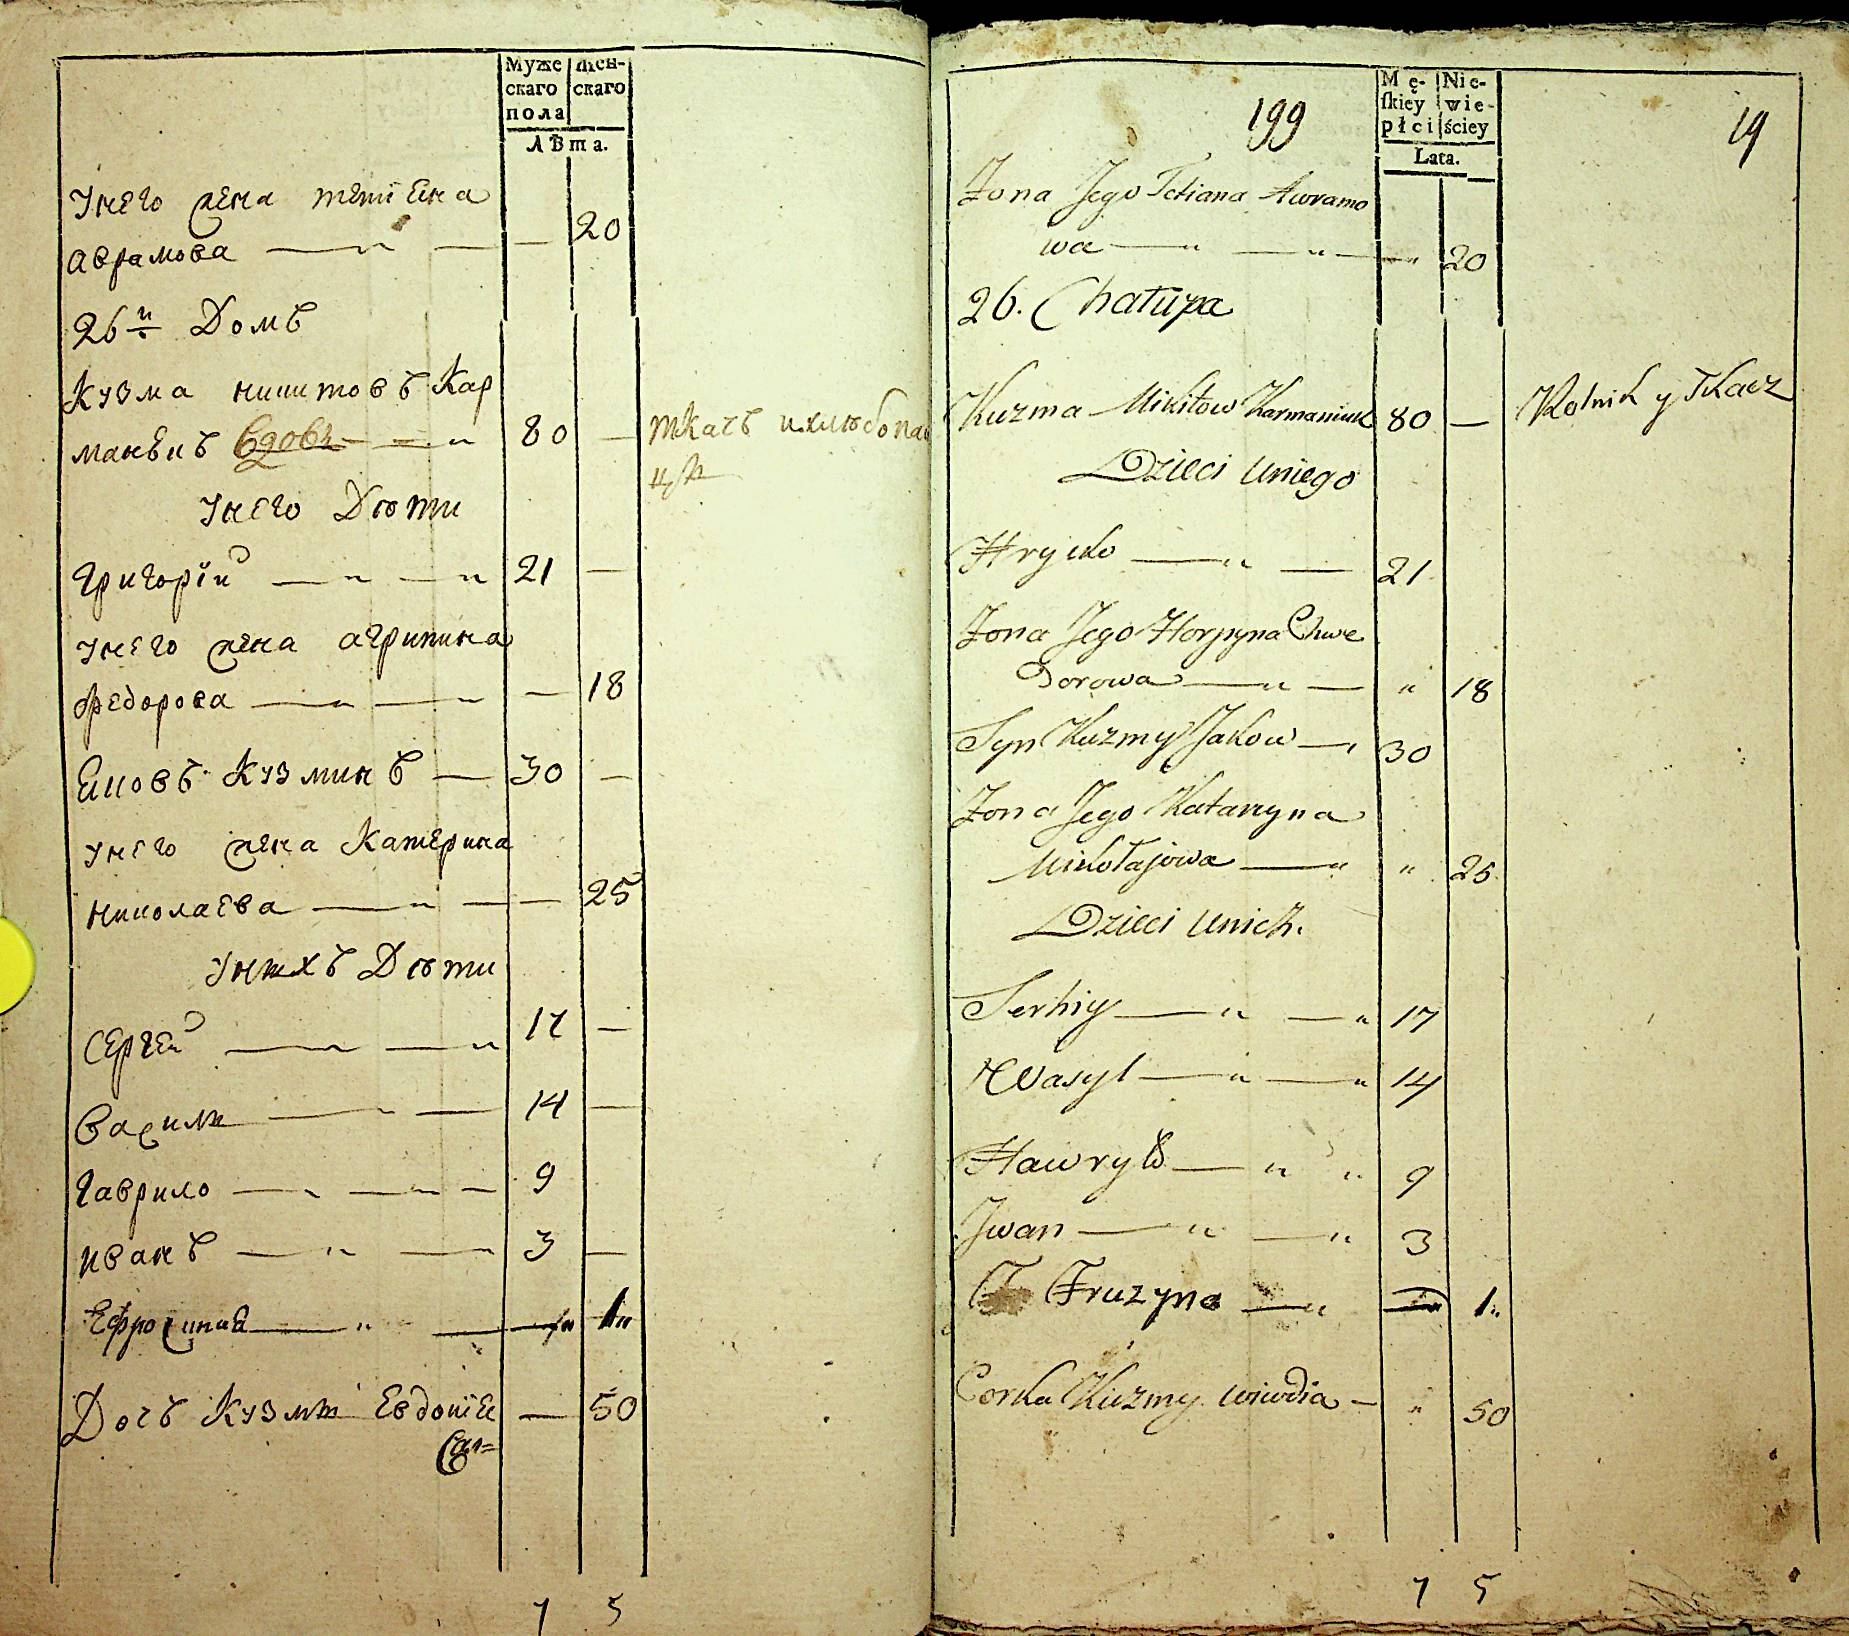 Муже
скаго
пола
Жен-
скаго
Лѣта.
Унего жена тетіена
аврамова — 20
26й Домъ
Кузма никитовъ Кар
манюкъ вдовъ — 80 —
ткачъ ихлюбопа
Унего Дюти
Григорїй — 21 —
Унего жена агрипина
федорова — 18
Еиковъ Кузминъ — 30 —
Унего жена Катерина
николаева — 25
Унихъ Дюти
Сергей — 17 —
Васили — 14 —
Гаврило — 9
иванъ — 3 —
Ефросиния — 1
Дочъ Кузми Евдокїе — 50
7 5
199
19
Mę-
ſkiey
płci
Nie-
wie-
ściey
Lata.
Żona Jego Tetiana Awramo
wa — 20
26. Chałupa
Kuzma Mikitow Karmaniuk 80 —
Rolnik y Tkacz
Dzieci Uniego
Hrycko — 21
Żona Jego Horpyna Chwe
Dorowa — 18
Syn Kuzmy Jakow — 30
Żona Jego Katarzyna
Mikołajowa — 25
Dzieci Unich.
Serhiy — 17
Wasyl — 14
Hawryło — 9
Jwan — 3
Fruzyna — 1
Corka Kuzmy Wiwdia — 50
7 5